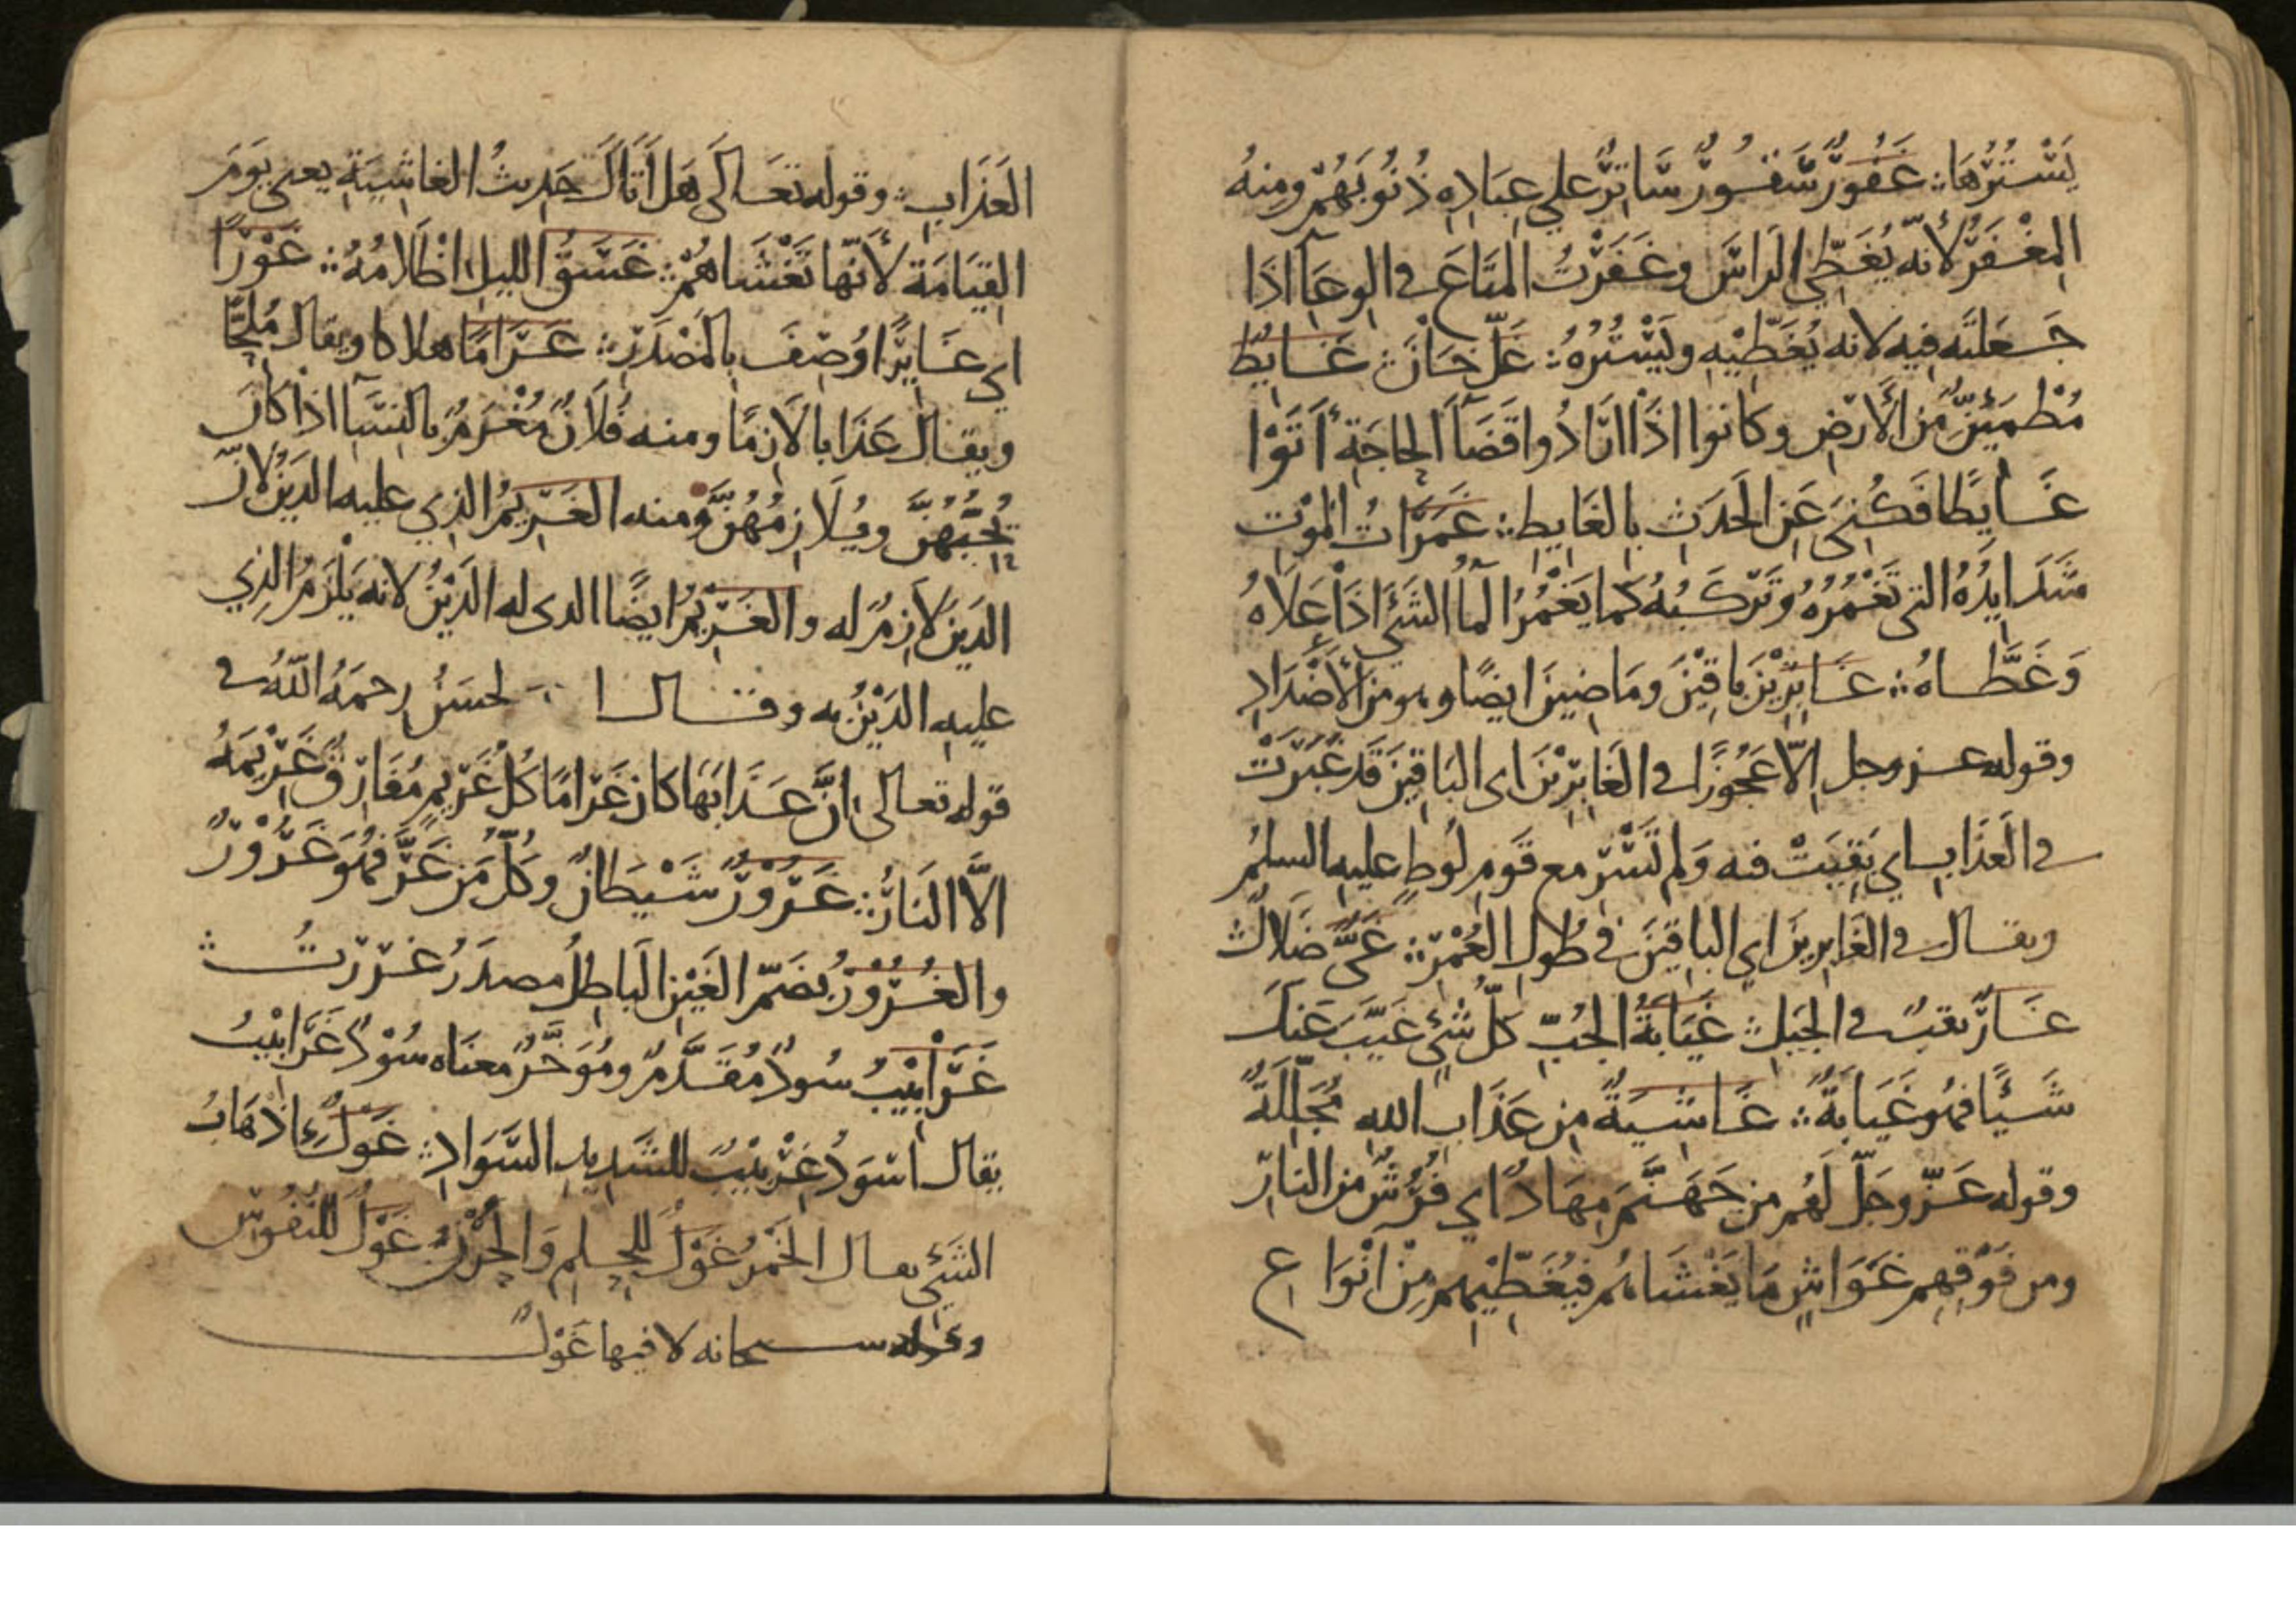 يَسْتُرُهَا ؞ غَفُورٌ سَتُورٌ سَاتِرٌ علي عِبَادِهِ ذُنُوبَهُمْ ومِنهُ
المِغْفَرُ لأنّه يُغَطِّي الرَاسَ وغَفَرْتُ المَتَاعَ في الوِعَآ اذَا
جَعَلتَه فيه لانه يُغَطِّيْهِ ويَسْتُرُهُ ؞ غِلّ خَانَ ؞ غَايِطٌ
مُطْمَئِنٌّ مِنَ الأَرْضِ وكانوا اذَا ارَادُوا قَضَآ الحاجَةِ أَتَوْا
غَايِطًا فَكُنِيَ عَنِ الحَدَثِ بِالغَايِطِ ؞ غَمَرَاتُ المَوْتِ
شَدَايِدُهُ التي تَغْمُرُهُ وتَرْكَبُهُ كَما يَغْمُرُ المآُ الشَيَ اذَا عَلَاهُ
وَغَطَّاهُ ؞ غَابِرِيْنَ بَاقِيْنَ ومَاضِينَ ايضًا وهو مِنَ الأَضْدَادِ
وقوله عز وجل اِلّا عَجُوزًا في الغَابِرِيْنَ اى البَاقِيْنَ قَد غَبَرَتْ
في العَذَابِ اي بَقِيَتْ فيه وَلم تَسِرْ مع قَومِ لُوطٍ عليه السلمُ
ويقال في الغَابِرِينَ اي الباقِيْنَ في طُولِ العُمْرِ ؞ غَيٌّ ضَلالٌ
غَارٌ نقبٌ في الجَبَلِ ؞ غَيَابَةُ الجُبِّ كلُّ شَيْءٍ غَيَّبَ عَنكَ
شَيْئًا فهُو غَيَابَةٌ ؞ غَاشِيَةٌ مِن عَذَابِ الله مُجَلِّلَةٌ
وقوله عَزّ وجَلّ لَهُم مِن جَهَنَّمَ مِهَادٌ اي فُرُشٌ مِنَ النارِ
ومِن فَوْقِهِم غَوَاشٍ مَا يَغْشَاهُم فَيُغَطِّيْهِم مِنْ اَنْوَاعِ
العَذَابِ ؞ وقوله تعَالَى هَل أَتَاكَ حَدِيثُ الغاشِيَةِ يعني يَوَمَ
القِيَامَة لأنّها تَغْشَاهُمْ ؞ غَسَقُ الليلِ اظْلَامُهُ ؞ غَوْرًا
اي غَايِرًا وُصِفَ بِالمَصْدَرِ ؞ غَرَامًا هلاكا ويقال مُلِحًّا
ويقال عَذَابا لَازِمًا ومنه فُلَانٌ مُغْرَمٌ بالنِسَآ اذا كانَ
يُحِبُّهُنَّ ويُلَازِمُهُنَّ ومنه الغَرِيمُ الذِي عليه الدَيْنُ لانّ
الدَيْنَ لَازِمٌ له والغَرِيْمُ ايضًا الذى له الدَيْنُ لانه يَلْزَمُ الذِي
عليهِ الدَيْنُ به وقال الحَسَنُ رحمَهُ اللهُ في
قوله تعالى اِنَّ عَذَابَهَا كان غَرَامًا كُلُ غَرِيمٍ مُفَارِقٌ غَرِيْمَهُ
الاَّ النَارُ ؞ غَرُوْرٌ شَيْطَانٌ وكلُّ مَن غَرَّ فهُوَ غَرُوْرٌ
والغُرُوْرُ بِضَمِّ الغَيْنِ البَاطِلُ مصدَرُ غَرَرْتُ ؞
غَرَابِيْبُ سُودٌ مُقَدَّمٌ ومُوَخَّرٌ معنَاه سُوْدٌ غَرَابِيْبُ
يقال اسْوَدُ غِرْبِيْبٌ للشَدِيدِ السَّوَادِ ؞ غَوْلٌ اذهَابُ
الشَيْءِ يقال الخَمْرُ غَوْلٌ لِلحِلمِ وَالحَرْبُ غَوْلٌ للنُفُوسِ
وقوله سبحانه لا فيها غَوْلٌ